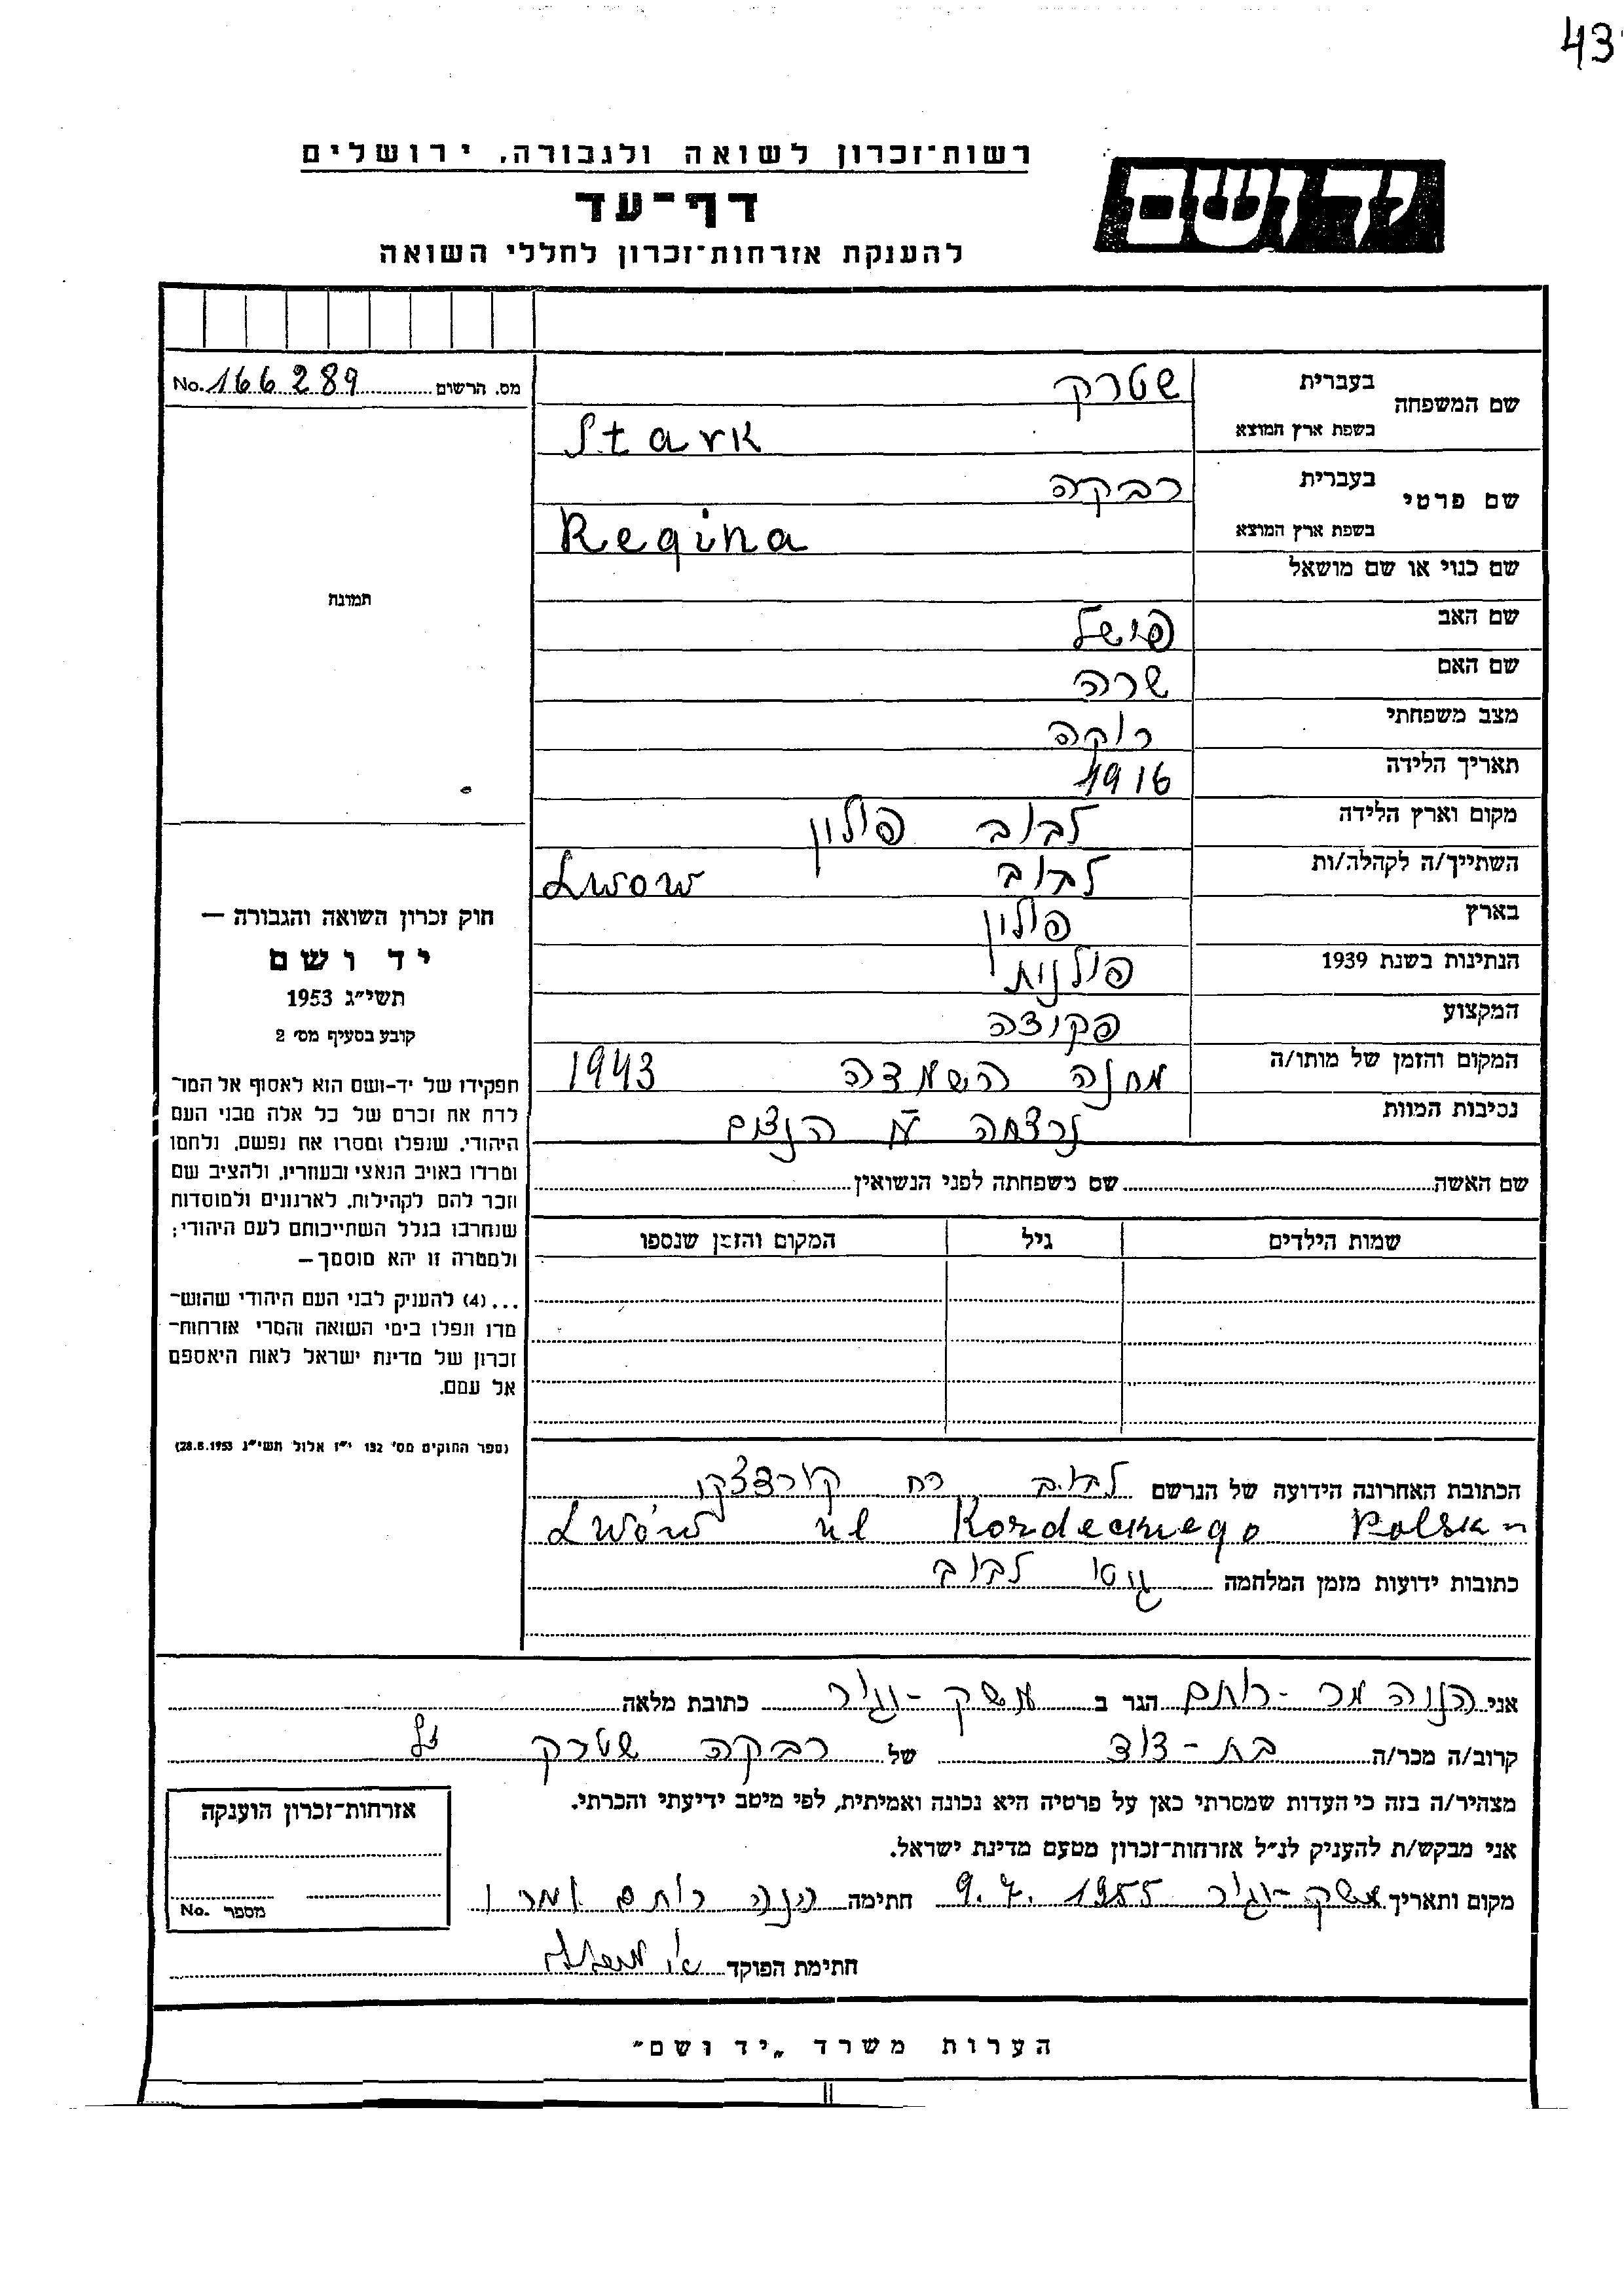 43
יד ושם
רשות-זכרון לשואה ולגבורה, ירושלים
דף-עד
להענקת אזרחות-זכרון לחללי השואה
מס. הרשום No. 166289
שם המשפחה בעברית שטרק
בשפת ארץ המוצא Stark
שם פרטי בעברית רבקה
בשפת ארץ המוצא Regina
שם כנוי או שם מושאל
שם האב פישל
שם האם שרה
מצב משפחתי רוקה
תאריך הלידה 1916
מקום וארץ הלידה לבוב פולין
השתייך/ה לקהלה/ות לבוב Lwow
בארץ פולין
הנתינות בשנת 1939 פולנית
המקצוע פקידה
המקום והזמן של מותו/ה מחנה השמדה 1943
נסיבות המוות נרצחה ע"י הנצים
שם האשה שם משפחתה לפני הנשואין
שמות הילדים גיל המקום והזמן שנספו
הכתובת האחרונה הידועה של הנרשם לבוב רח קורדצקי
Lwów ul Kordeckiego Polska
כתובות ידועות מזמן המלחמה גטו לבוב
תמונה
חוק זכרון השואה והגבורה —
יד ושם
תשי"ג 1953
קובע בסעיף מס' 2
תפקידו של יד-ושם הוא לאסוף אל המו-
לדת את זכרם של כל אלה מבני העם
היהודי, שנפלו ומסרו את נפשם, נלחמו
ומרדו באויב הנאצי ובעוזריו, ולהציב שם
וזכר להם לקהילות, לארגונים ולמוסדות
שנחרבו בגלל השתייכותם לעם היהודי;
ולמטרה זו יהא מוסמך —
...(4) להעניק לבני העם היהודי שהוש-
מדו ונפלו בימי השואה והמרי אזרחות-
זכרון של מדינת ישראל לאות היאספם
אל עמם.
(ספר החוקים מס' 132 י"ז אלול תשי"ג 28.8.1953)
אני הנוה מר-רותם הגר ב משק-וגיר כתובת מלאה
קרוב/ה מכר/ה בת-דוד של רבקה שטרק ז"ל
מצהיר/ה בזה כי העדות שמסרתי כאן על פרטיה היא נכונה ואמיתית, לפי מיטב ידיעתי והכרתי.
אני מבקש/ת להעניק לנ"ל אזרחות-זכרון מטעם מדינת ישראל.
מקום ותאריך משק-וגיר 9.7.1955 חתימה הנה רותם
חתימת הפוקד
אזרחות-זכרון הוענקה
מספר No.
הערות משרד „יד ושם"